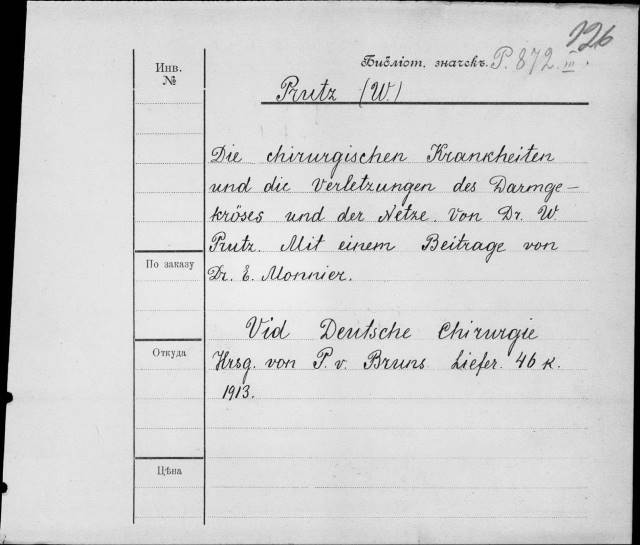 126
Инв.
№
Библіот. значекъ. P. 872. III.
Prutz (W.)
Die chirurgischen Krankheiten
und die Verletzungen des Darmge-
kröses und der Netze. Von Dr. W.
Prutz. Mit einem Beitrage von
Dr. E. Monnier.
По заказу
Vid Deutsche Chirurgie
Откуда
Hrsg. von P. v. Bruns. Liefer. 46 K.
1913.
Цѣна